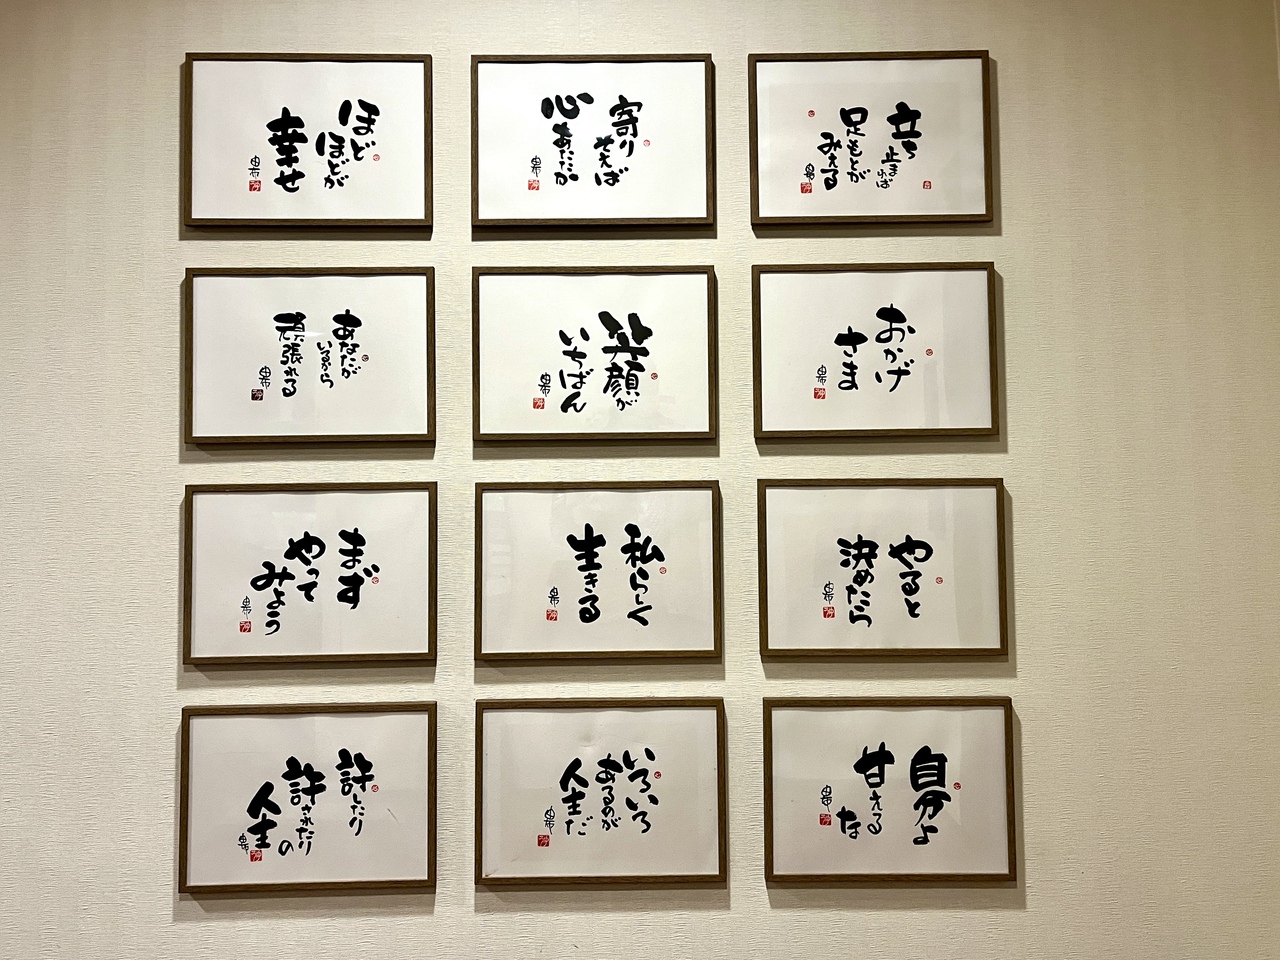 ほど
ほどが
幸せ
寄り
そえば
心
あたたか
立ち
止まれば
足もとが
みえる
あなたが
いるから
頑張れる
笑顔が
いちばん
おかげ
さま
まず
やって
みよう
私らしく
生きる
やると
決めたら
許したり
許されたり
の
人生
いろいろ
あるのが
人生だ
自分よ
甘える
な